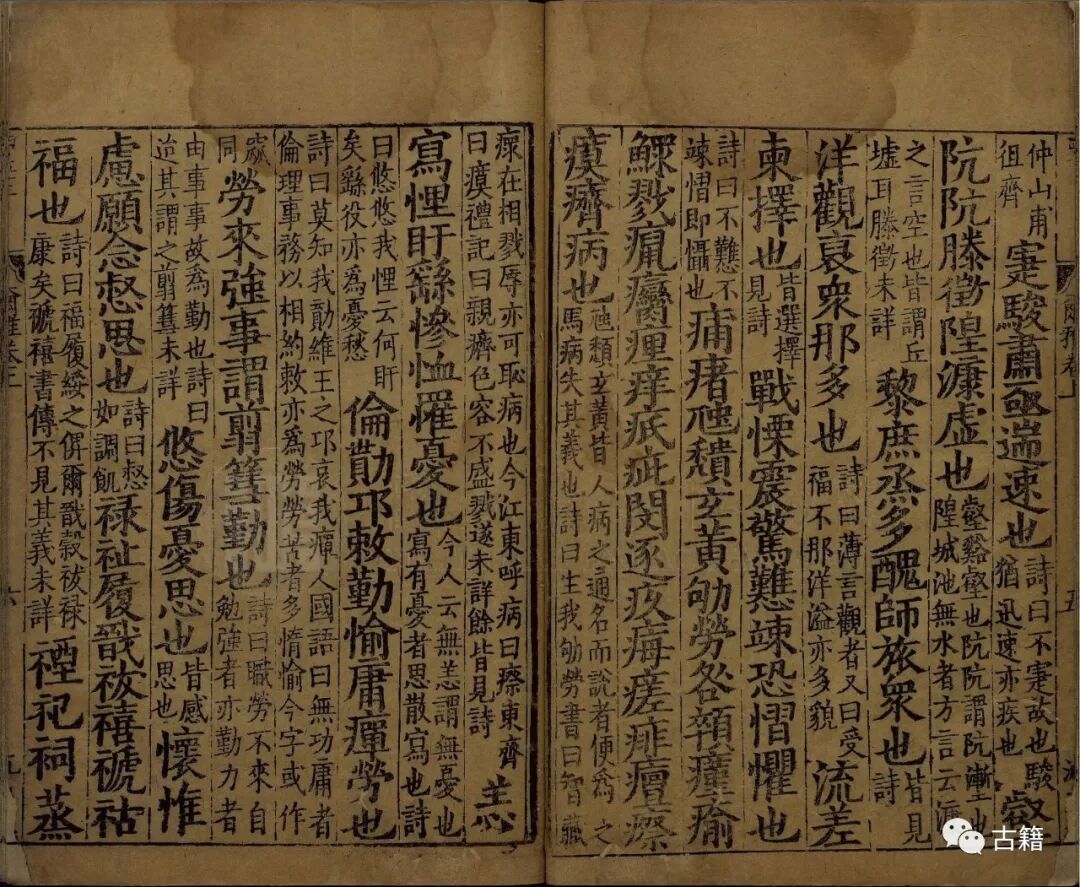 仲山甫徂齊寁駿肅亟遄速也詩曰不寁故也駿猶迅速亦疾也壑
阬阬滕徵隍漮虛也壑谿壑也阬阬謂阬壍也隍城池無水者方言云漮
之言空也皆謂丘墟耳滕徵未詳黎庶烝多醜師旅衆也皆見詩
洋觀裒衆那多也詩曰薄言觀者又曰受福不那洋溢亦多貌流差
柬擇也皆選擇見詩戰慄震驚戁竦恐慴懼也
詩曰不戁不竦慴即懾也痡瘏虺穨玄黃劬勞咎顇瘽瘉
鰥戮癙癵瘇痒疷疵閔逐疚痗瘥痱癉瘵
瘼癠病也虺頹玄黃皆人病之通名而說者便爲之馬病失其義也詩曰生我劬勞書曰智藏
瘝在相戮辱亦可恥病也今江東呼病曰瘵東齊曰瘼禮記曰親癠色容不盛戮逐未詳餘皆見詩恙
寫悝盱繇慘恤罹憂也今人云無恙謂無憂也寫有憂者思散寫也詩
曰悠悠我悝云何盱矣繇役亦爲憂愁倫勩邛敕勤愉庸癉勞也
詩曰莫知我勩維王之邛哀我癉人國語曰無功庸者倫理事務以相約敕亦爲勞勞苦者多惰愉今字或作
窳同勞來強事謂翦篲勤也詩曰職勞不來自勉強者亦勤力者
由事事故爲勤也詩曰迨其謂之翦篲未詳悠傷憂思也皆感思也懷惟
慮願念惄思也詩曰惄如調飢祿祉履戩祓禧禠祜
福也詩曰福履綏之俾爾戩穀祓祿康矣禠禧書傳不見其義未詳禋祀祠蒸
古籍